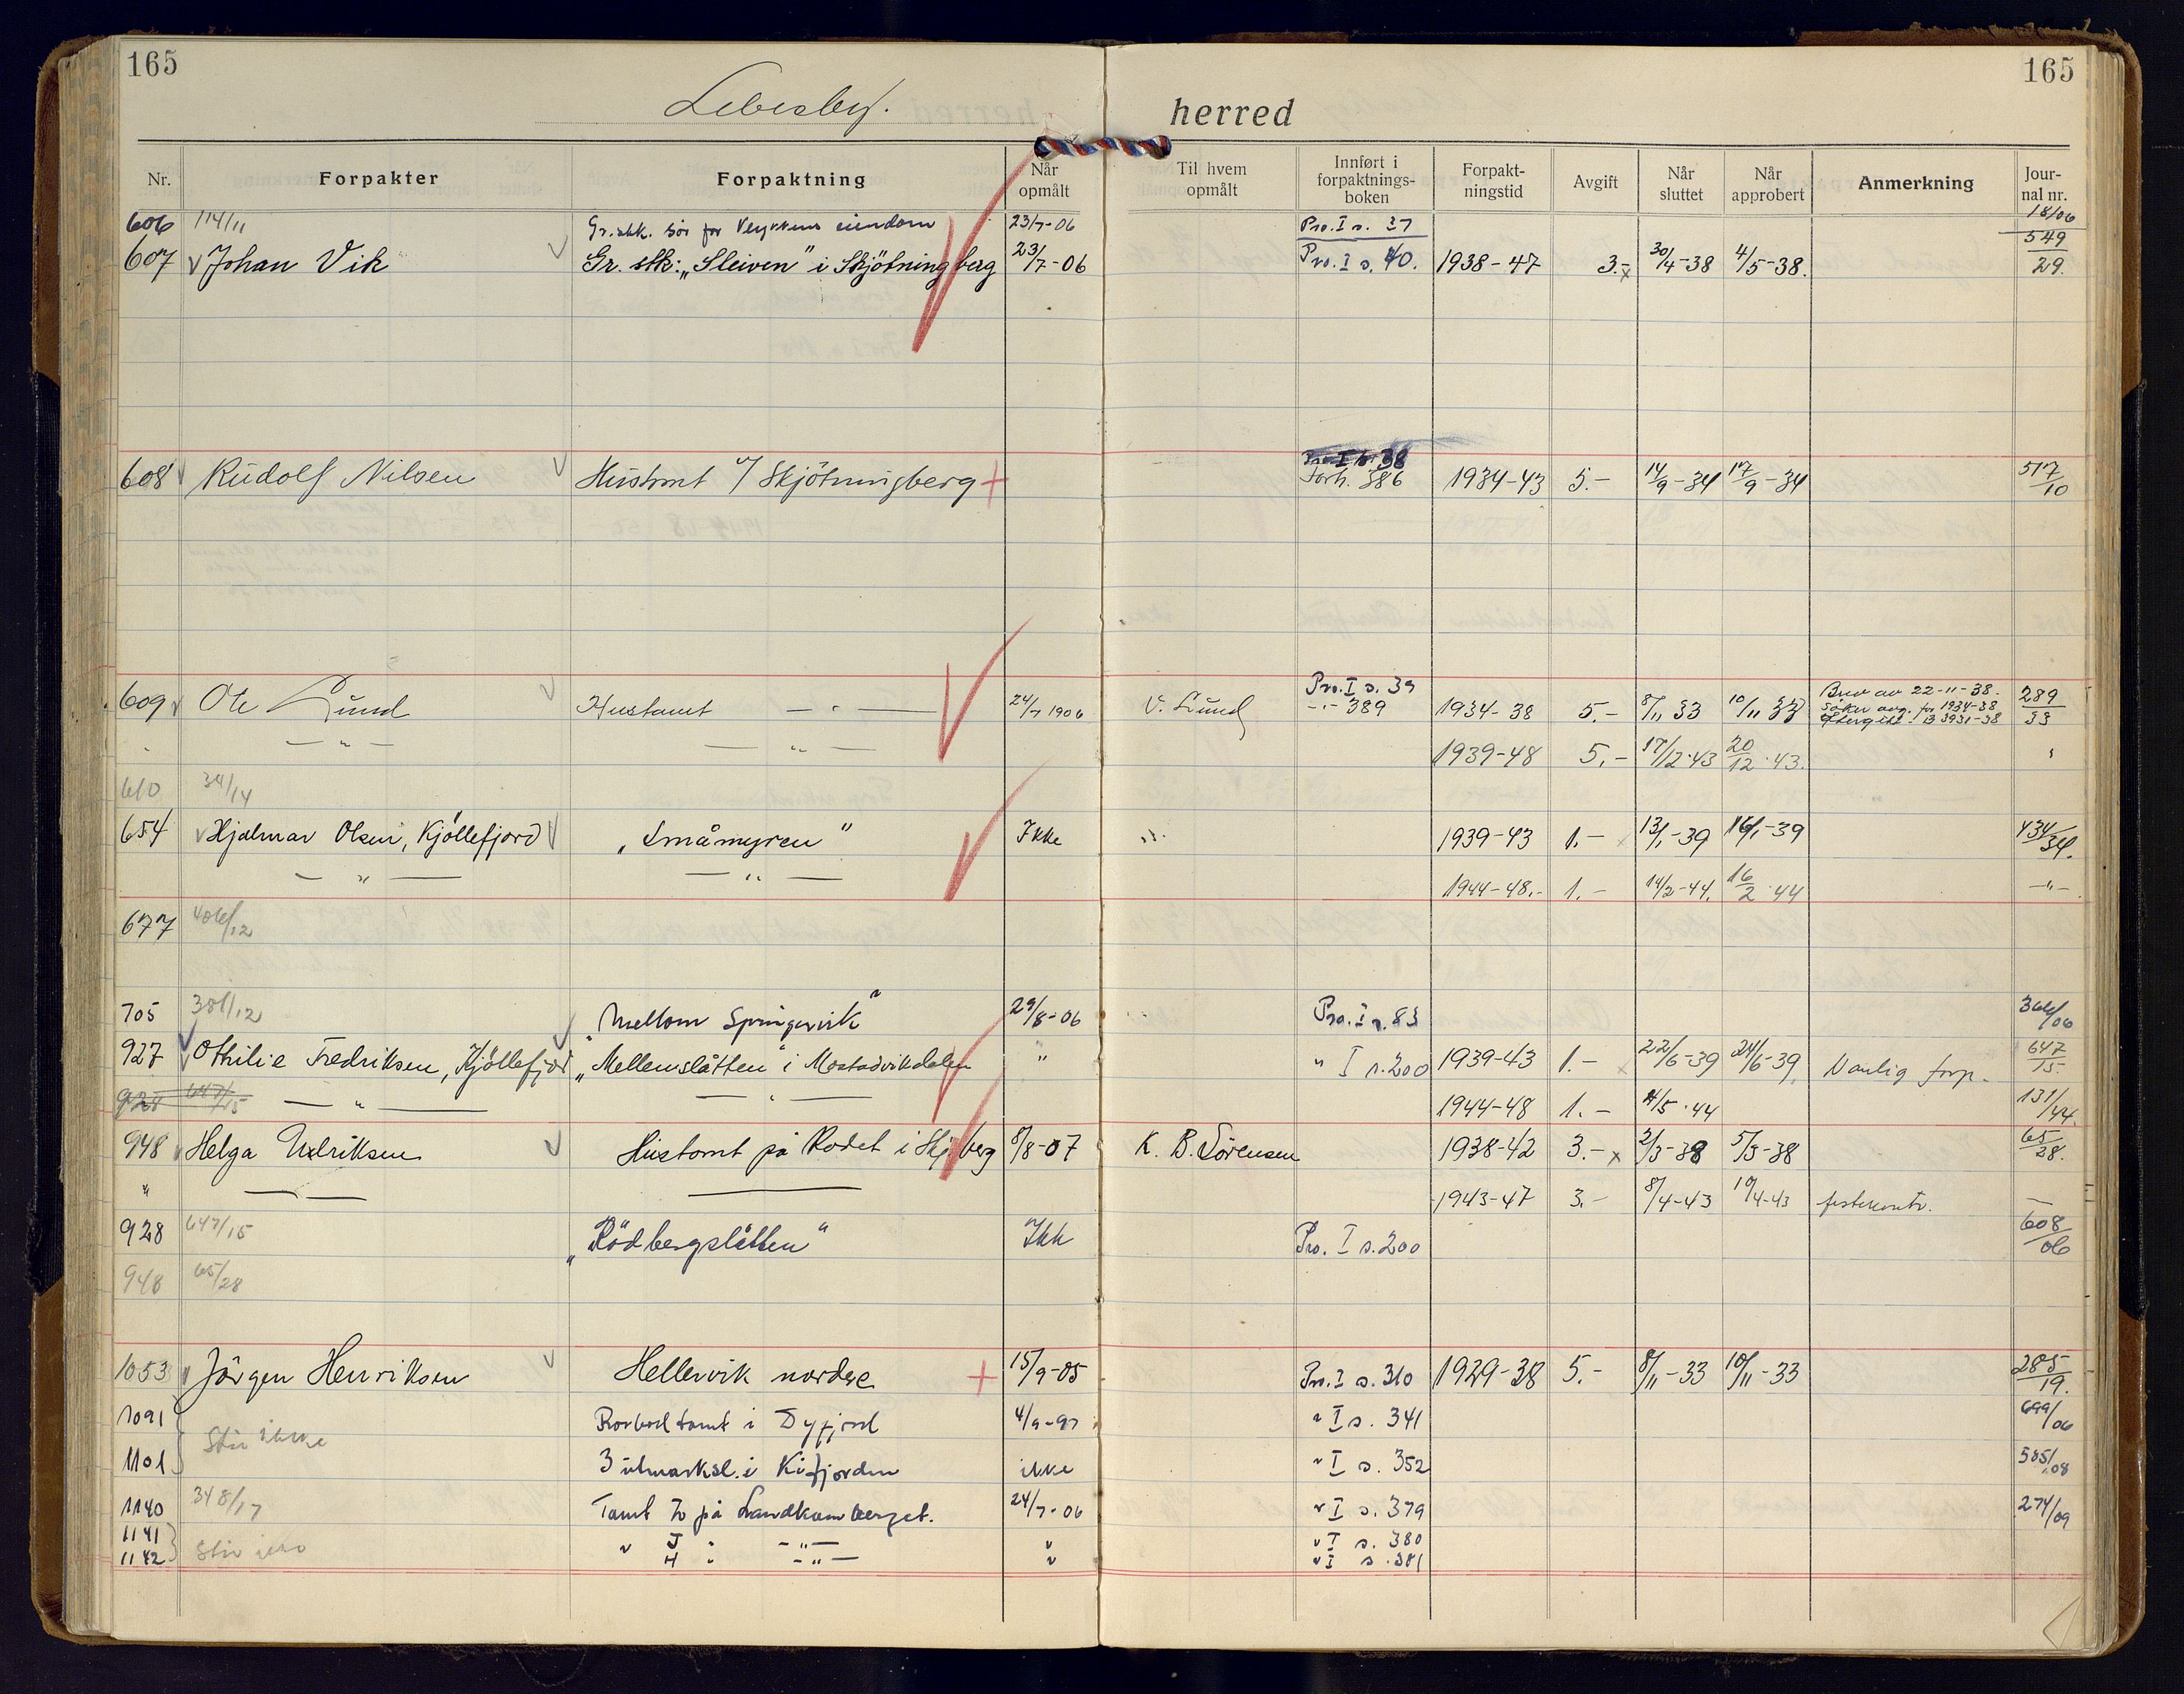 165 165
Lebesby. herred
Nr. Forpakter Forpaktning Når opmålt Til hvem opmålt Innført i forpaktnings-boken Forpakt-ningstid Avgift Når sluttet Når approbert Anmerkning Jour-nal nr.
606 114/11 Gr.stk. sör for eiendom 23/7-06 Pro. I s. 37 18/06
607 Johan Vik Gr. stk: „Sleiven" i Skjötningberg 23/7-06 Pro. I s. 40. 1938-47 3.- 30/4-38 4/5-38. 549/29.
608 Rudolf Nilsen Hustomt i/ Skjötningberg Pro I s. 38 Forh. 386 1934-43 5.- 14/9-34 17/9-34 517/10
609 Ole Lund Hustomt — " — 24/7 1906 V. Lund Pro. I s. 39 -"- 389 1934-38 5.- 8/11 33 10/11 33 Brev av 22-11-38. 289/33
söker avg. for 1934-38
" — " — — " — 1939-48 5.- 17/12-43 20/12-43. "
610 34/14
654 Hjalmar Olsen, Kjöllefjord „Småmyren" Ikke 1939-43 1.- 13/1-39 16/1-39 434/34.
— " — — " — 1944-48.- 1.- 14/2-44. 16/2-44 -"-
677 406/12
705 381/12 „Mellom Springvik" 29/8-06 Pro. I s. 83 366/06
927 Othilie Fredriksen, Kjöllefjord „Mellenslåtten" i Mostadvikdalen " " I s. 200 1939-43 1.- 22/6-39 24/6-39 Vanlig forp. 647/15
928 647/15 — " — — " — 1944-48 1.- 4/5-44 131/44.
948 Helga Hustomt på Rodet i Skj.berg 8/8-07 K. B. Sörensen 1938-42 3.- 2/3-38 5/3-38 65/28.
" — — 1943-47 3.- 8/4-43 10/4-43 festekontr. —
928 647/15 „Rödbergslåtten" Ikk Pro. I s. 200 608/06
948 65/28
1053 Jörgen Henriksen Hellervik nordre 15/9-05 Pro. I s. 310 1929-38 5.- 8/11-33 10/11-33 285/19.
1091 Rorbodtomt i Dyfjord 4/9-97 " I s. 341 699/06
Står ikke
1101 3 utmarksl. i Kifjorden ikke " I s. 352 585/08
1140 348/17 Tomt på Landkomberget. 24/7-06 " I s. 379 274/09
1141 " J " — " — " " I s. 380
Står ikke
1142 H " — " — " " I s. 381